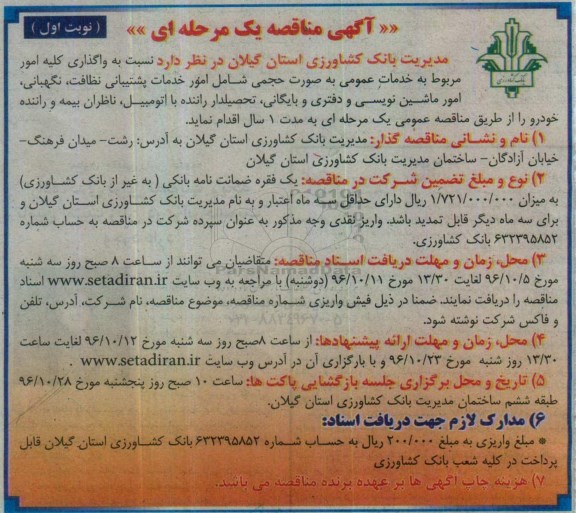 «« آگهی مناقصه یک مرحله ای »»
( نوبت اول )
مدیریت بانک کشاورزی استان گیلان در نظر دارد نسبت به واگذاری کلیه امور
مربوط به خدمات عمومی به صورت حجمی شامل امور خدمات پشتیبانی نظافت، نگهبانی،
امور ماشین نویسی و دفتری و بایگانی، تحصیلدار راننده با اتومبیل، ناظران بیمه و راننده
خودرو را از طریق مناقصه عمومی یک مرحله ای به مدت ۱ سال اقدام نماید.
۱) نام و نشانی مناقصه گذار: مدیریت بانک کشاورزی استان گیلان به آدرس: رشت- میدان فرهنگ-
خیابان آزادگان- ساختمان مدیریت بانک کشاورزی استان گیلان
۲) نوع و مبلغ تضمین شرکت در مناقصه: یک فقره ضمانت نامه بانکی ( به غیر از بانک کشاورزی)
به میزان ۱/۷۲۱/۰۰۰/۰۰۰ ریال دارای حداقل سه ماه اعتبار و به نام مدیریت بانک کشاورزی استان گیلان و
برای سه ماه دیگر قابل تمدید باشد. واریز نقدی وجه مذکور به عنوان سپرده شرکت در مناقصه به حساب شماره
۶۳۲۳۹۵۸۵۲ بانک کشاورزی.
۳) محل، زمان و مهلت دریافت اسناد مناقصه: متقاضیان می توانند از ساعت ۸ صبح روز سه شنبه
مورخ ۹۶/۱۰/۵ لغایت ۱۳/۳۰ مورخ ۹۶/۱۰/۱۱ (دوشنبه) با مراجعه به وب سایت www.setadiran.ir اسناد
مناقصه را دریافت نمایند. ضمنا در ذیل فیش واریزی شماره مناقصه، موضوع مناقصه، نام شرکت، آدرس، تلفن
و فاکس شرکت نوشته شود.
۴) محل، زمان و مهلت ارائه پیشنهادها: از ساعت ۸صبح روز سه شنبه مورخ ۹۶/۱۰/۱۲ لغایت ساعت
۱۳/۳۰ روز شنبه مورخ ۹۶/۱۰/۲۳ و با بارگزاری آن در آدرس وب سایت www.setadiran.ir .
۵) تاریخ و محل برگزاری جلسه بازگشایی پاکت ها: ساعت ۱۰ صبح روز پنجشنبه مورخ ۹۶/۱۰/۲۸
طبقه ششم ساختمان مدیریت بانک کشاورزی استان گیلان.
۶) مدارک لازم جهت دریافت اسناد:
* مبلغ واریزی به مبلغ ۲۰۰/۰۰۰ ریال به حساب شماره ۶۳۲۳۹۵۸۵۲ بانک کشاورزی استان گیلان قابل
پرداخت در کلیه شعب بانک کشاورزی
۷) هزینه چاپ آگهی ها بر عهده برنده مناقصه می باشد.